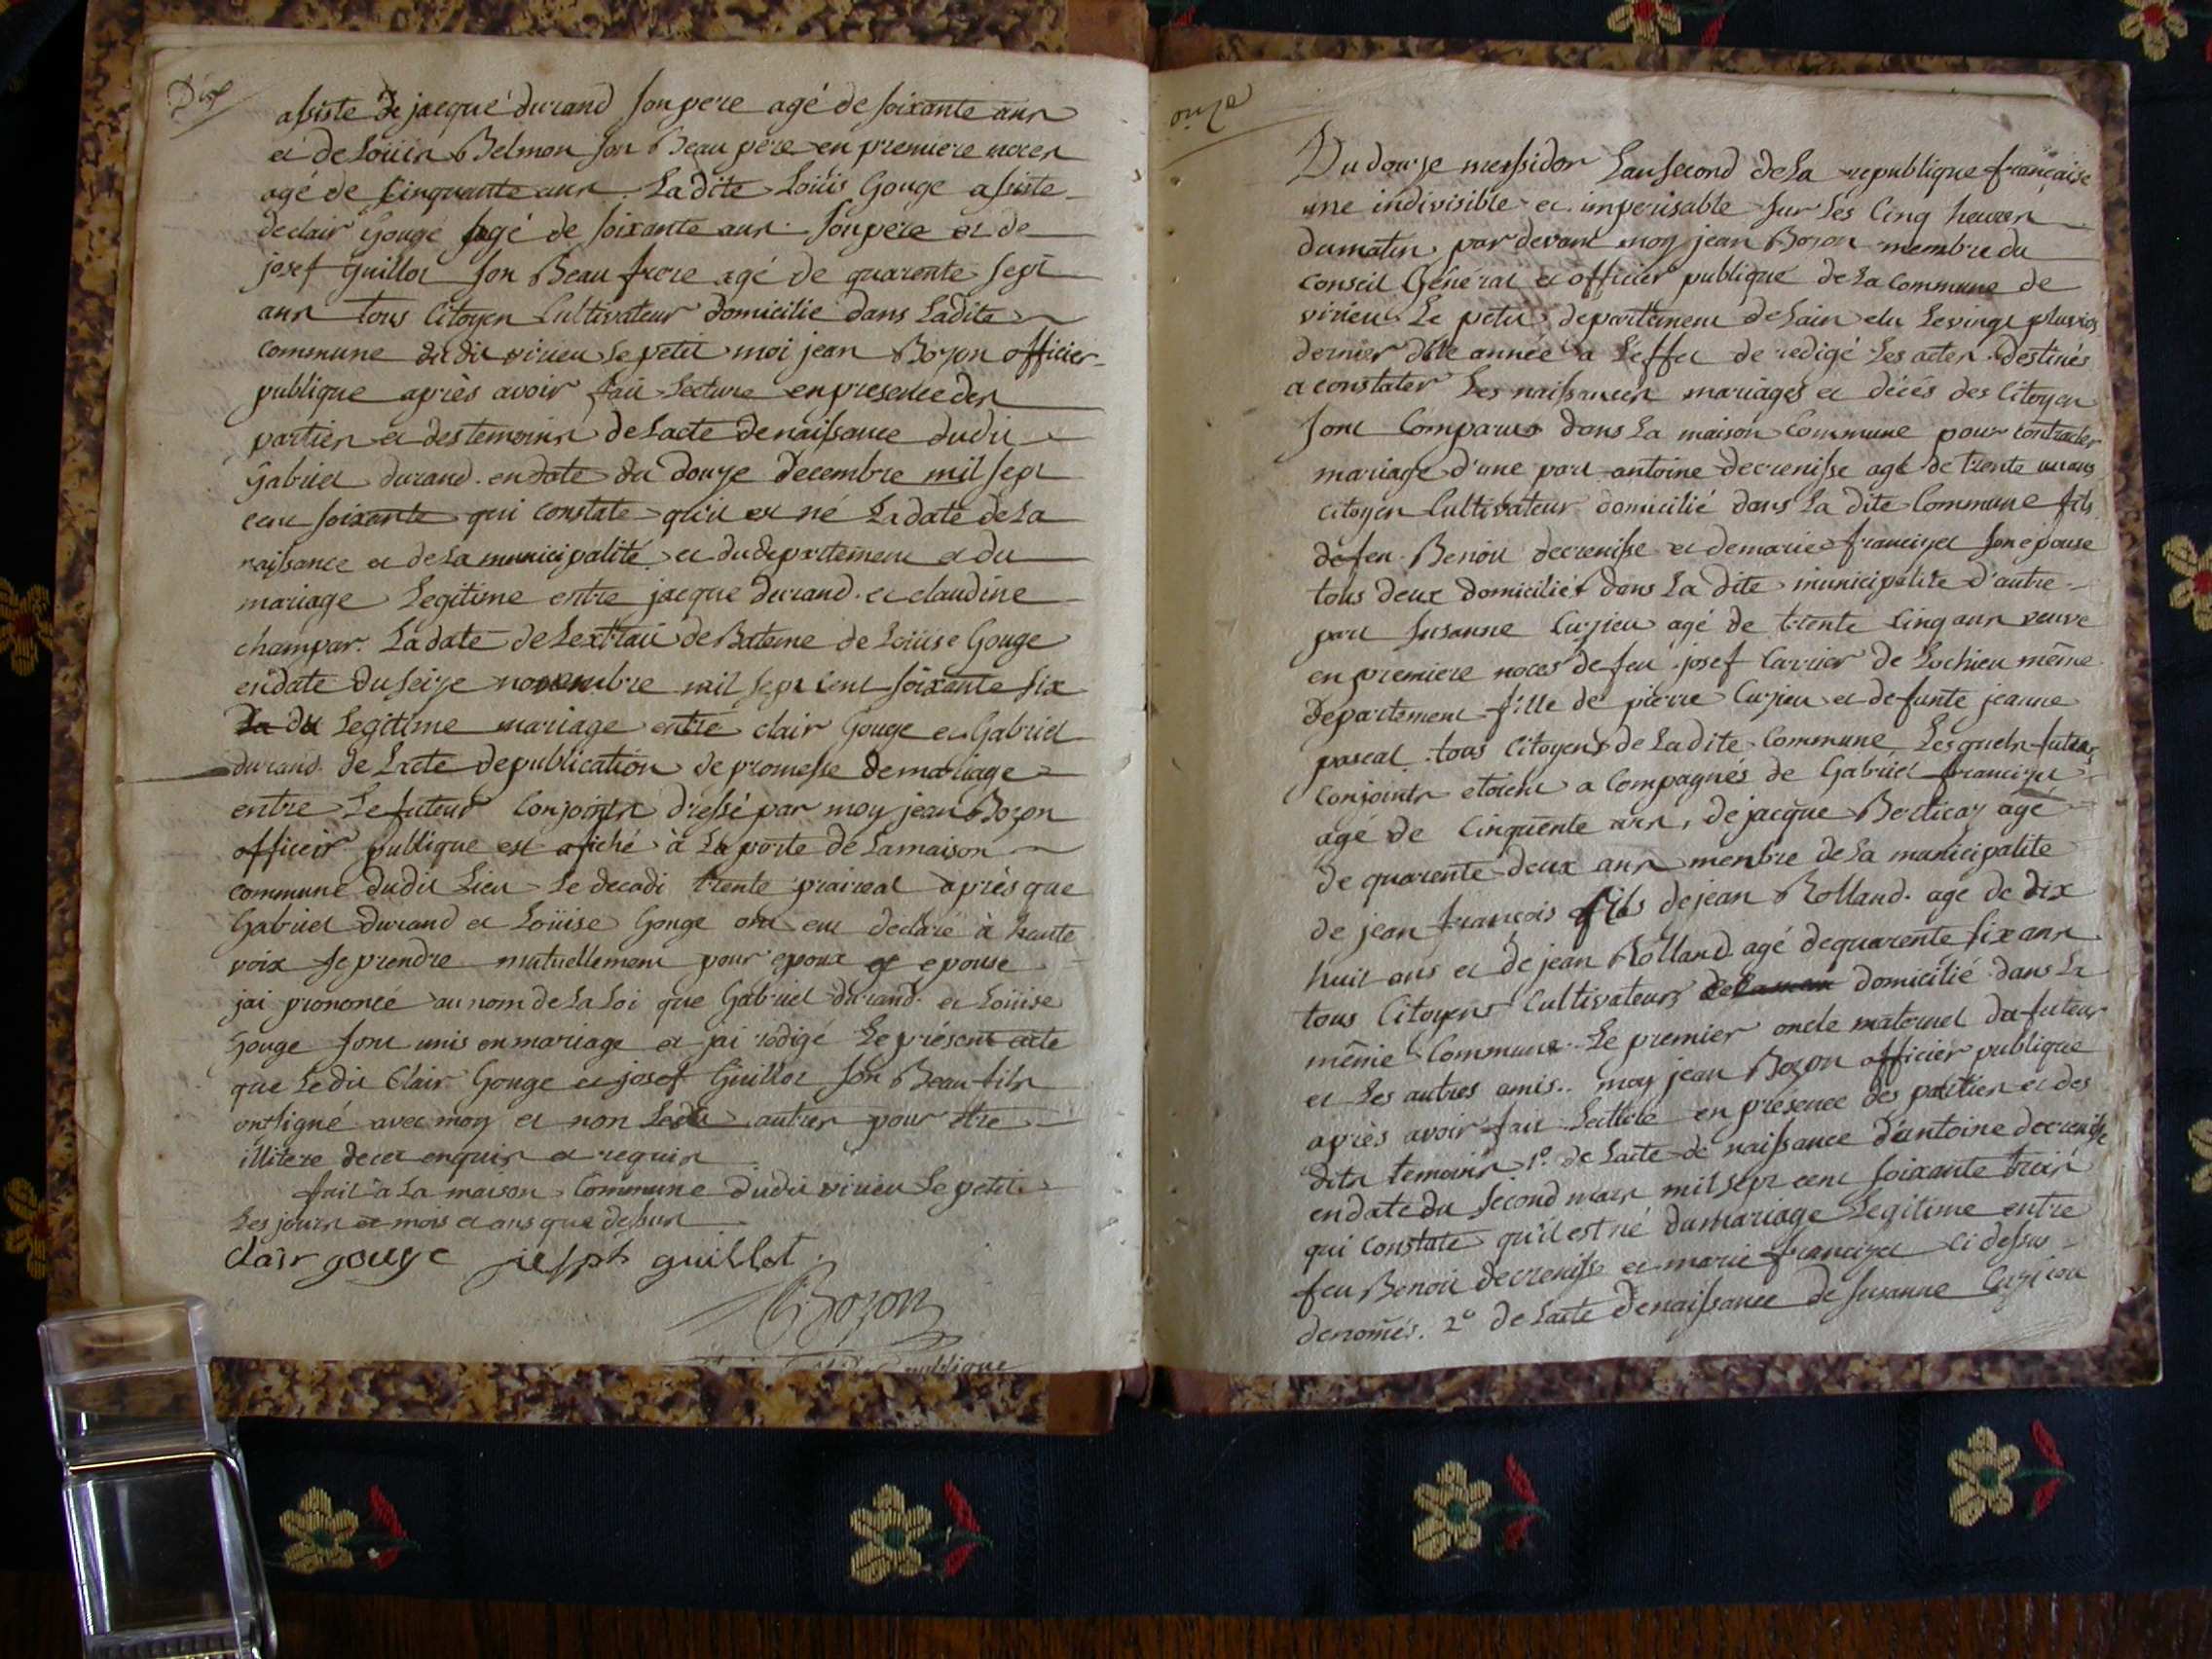 Dix
assiste de jacque durand son pere agé de soixante ans
et de Loüis Belmon son Beau pere en premiere noces
agé de Cinquante ans. La dite Loüis Gouge assiste
de clair Gouge agé de soixante ans son pere et de
josef Guillot son Beau frere agé de quarente sept
ans tous Citoyen Cultivateur domicilie dans Ladite
commune du dit virieu Le petit moi jean Bozon officier
publique après avoir fait Lecture en presence des
parties et des temoins de Lacte de naissance dudit
Gabriel durand. en date du douze decembre mil sept
cent soixante qui constate qu'il est né La date de La
naissance et de La municipalité et du departement et du
mariage Legitime entre jacque durand. et claudine
champar. La date de Lextrait de Bateme de Loüise Gouge
en date du seize novembre mil sept cent soixante six
du Legitime mariage entre clair Gouge et Gabriel
durand. de Lacte de publication de promesse de mariage
entre Le futeur Conjoints dressé par moy jean Bozon
officier publique est afiché à La porte de Lamaison
commune dudit Lieu Le decadi trente prairial après que
Gabriel durand et Loüise Gouge ont eu declare à haute
voix se prendre mutuellement pour epoux et epouse
jai prononcé au nom de La Loi que Gabriel durand. et Loüise
Gouge sont unis en mariage et jai rédigé Le présent acte
que Ledit Clair Gouge et josef Guillot son Beau fils
ont signé avec moy et non Les autres pour être
illitere de ce enquis et requis
fait à La maison Commune dudit virieu Le petit
Les jours et mois et ans que dessus
clair gouge guillot
Bozon
publique
onze
Du douze messidor Lan second de La republique française
une indivisible et imperisable sur Les Cinq heures
du matin par devant moy jean Bozon membre du
conseil Général et officier publique de La Commune de
virieu Le petit departement de Lain elu Le vingt pluvios
dernier dite année a L'effet de redigé Les actes destinés
a constater Les naissances mariages et décés des Citoyen
sont Comparus dans La maison Commune pour contracter
mariage d'une part antoine decrenisse agé de trente un ans
Citoyen Cultivateur domicilié dans La dite Commune fils
de feu Benoit decrenisse et de marie francizet son epouse
tous deux domiciliés dans La dite municipalite d'autre
part Susanne Cuzieu agé de trente Cinq ans veuve
en premiere noces de feu josef Carrier de Lochieu même
departement fille de pierre Cuzieu et defunte jeanne
pascal tous Citoyens de La dite Commune. Les quels futeurs
Conjoints etoient a Compagnés de Gabriel francizet
agé de Cinquente ans, de jacque agé
de quarente deux ans menbre de La municipalite
de jean françois fils de jean Rolland. agé de dix
huit ans et de jean Rolland agé de quarente six ans
tous Citoyens Cultivateurs domicilié dans La
même Commune Le premier oncle maternel du futeur
et Les autres amis.. moy jean Bozon officier publique
après avoir fait Lecture en présence des parties et des
dits temoins 1º. de Lacte de naissance d'antoine decrenisse
en date du second mars mil sept cent soixante trois
qui constate qu'il est né du mariage Legitime entre
feu Benoit decrenisse et marie francizet Ci dessus
denomés. 2º de Lacte de naissance de susanne Cuzieu